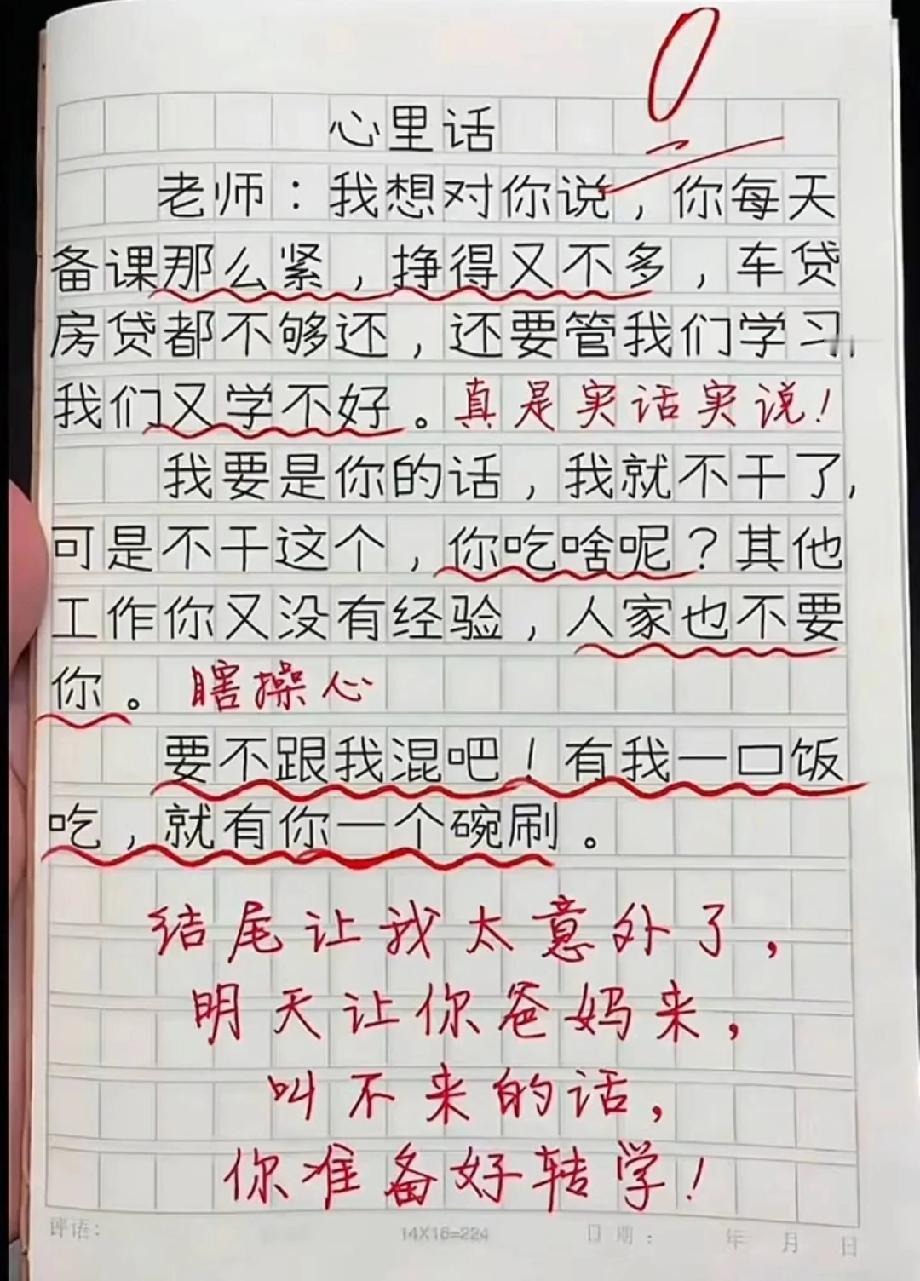 0
心里话
老师：我想对你说，你每天
备课那么紧，挣得又不多，车贷
房贷都不够还，还要管我们学习，
我们又学不好。真是实话实说！
我要是你的话，我就不干了，
可是不干这个，你吃啥呢？其他
工作你又没有经验，人家也不要
你。瞎操心
要不跟我混吧！有我一口饭
吃，就有你一个碗刷。
结尾让我太意外了，
明天让你爸妈来，
叫不来的话，
你准备好转学！
评语： 14X16=224 日期： 年 月 日